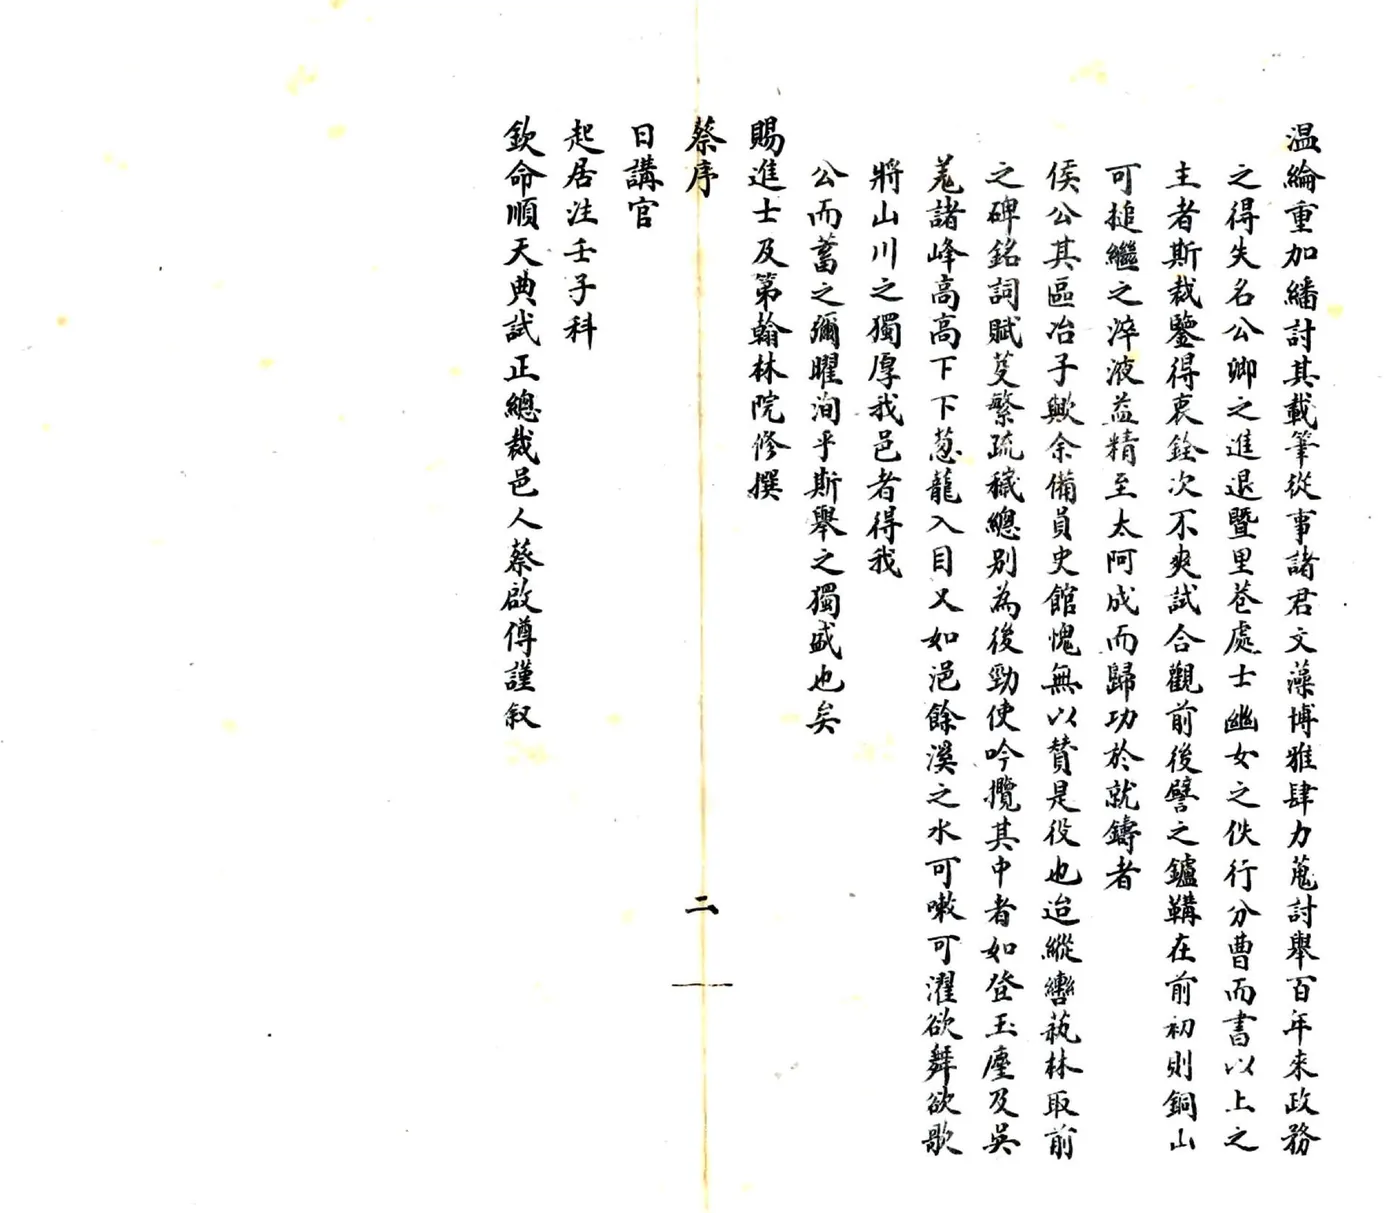 温綸重加繙討其載筆從事諸君文藻博雅肆力蒐討舉百年來政務
之得失名公卿之進退暨里巷處士幽女之佚行分曹而書以上之
主者斯裁鑒得衷銓次不爽試合觀前後譬之鑪鞲在前初則銅山
可搥繼之淬液益精至太阿成而歸功於就鑄者
侯公其區冶子歟余備員史館愧無以贊是役也迨縱轡蓺林取前
之碑銘詞賦芟繁疏穢總别為後勁使吟攬其中者如登玉塵及吳
羗諸峰高高下下葱蘢入目又如浥餘溪之水可嗽可濯欲舞欲歌
將山川之獨厚我邑者得我
公而蓄之彌曜洵乎斯舉之獨盛也矣
賜進士及第翰林院修撰
蔡序
二
日講官
起居注壬子科
欽命順天典試正總裁邑人蔡啟僔謹叙